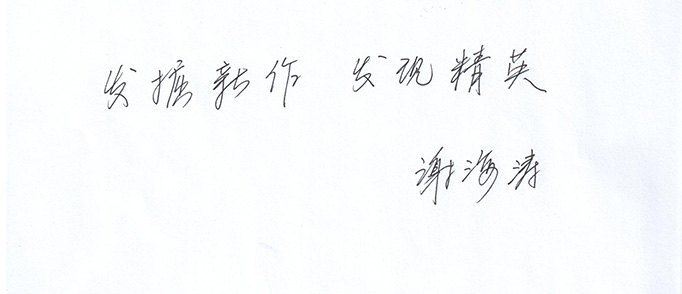 发掘新作 发现精英
谢海涛